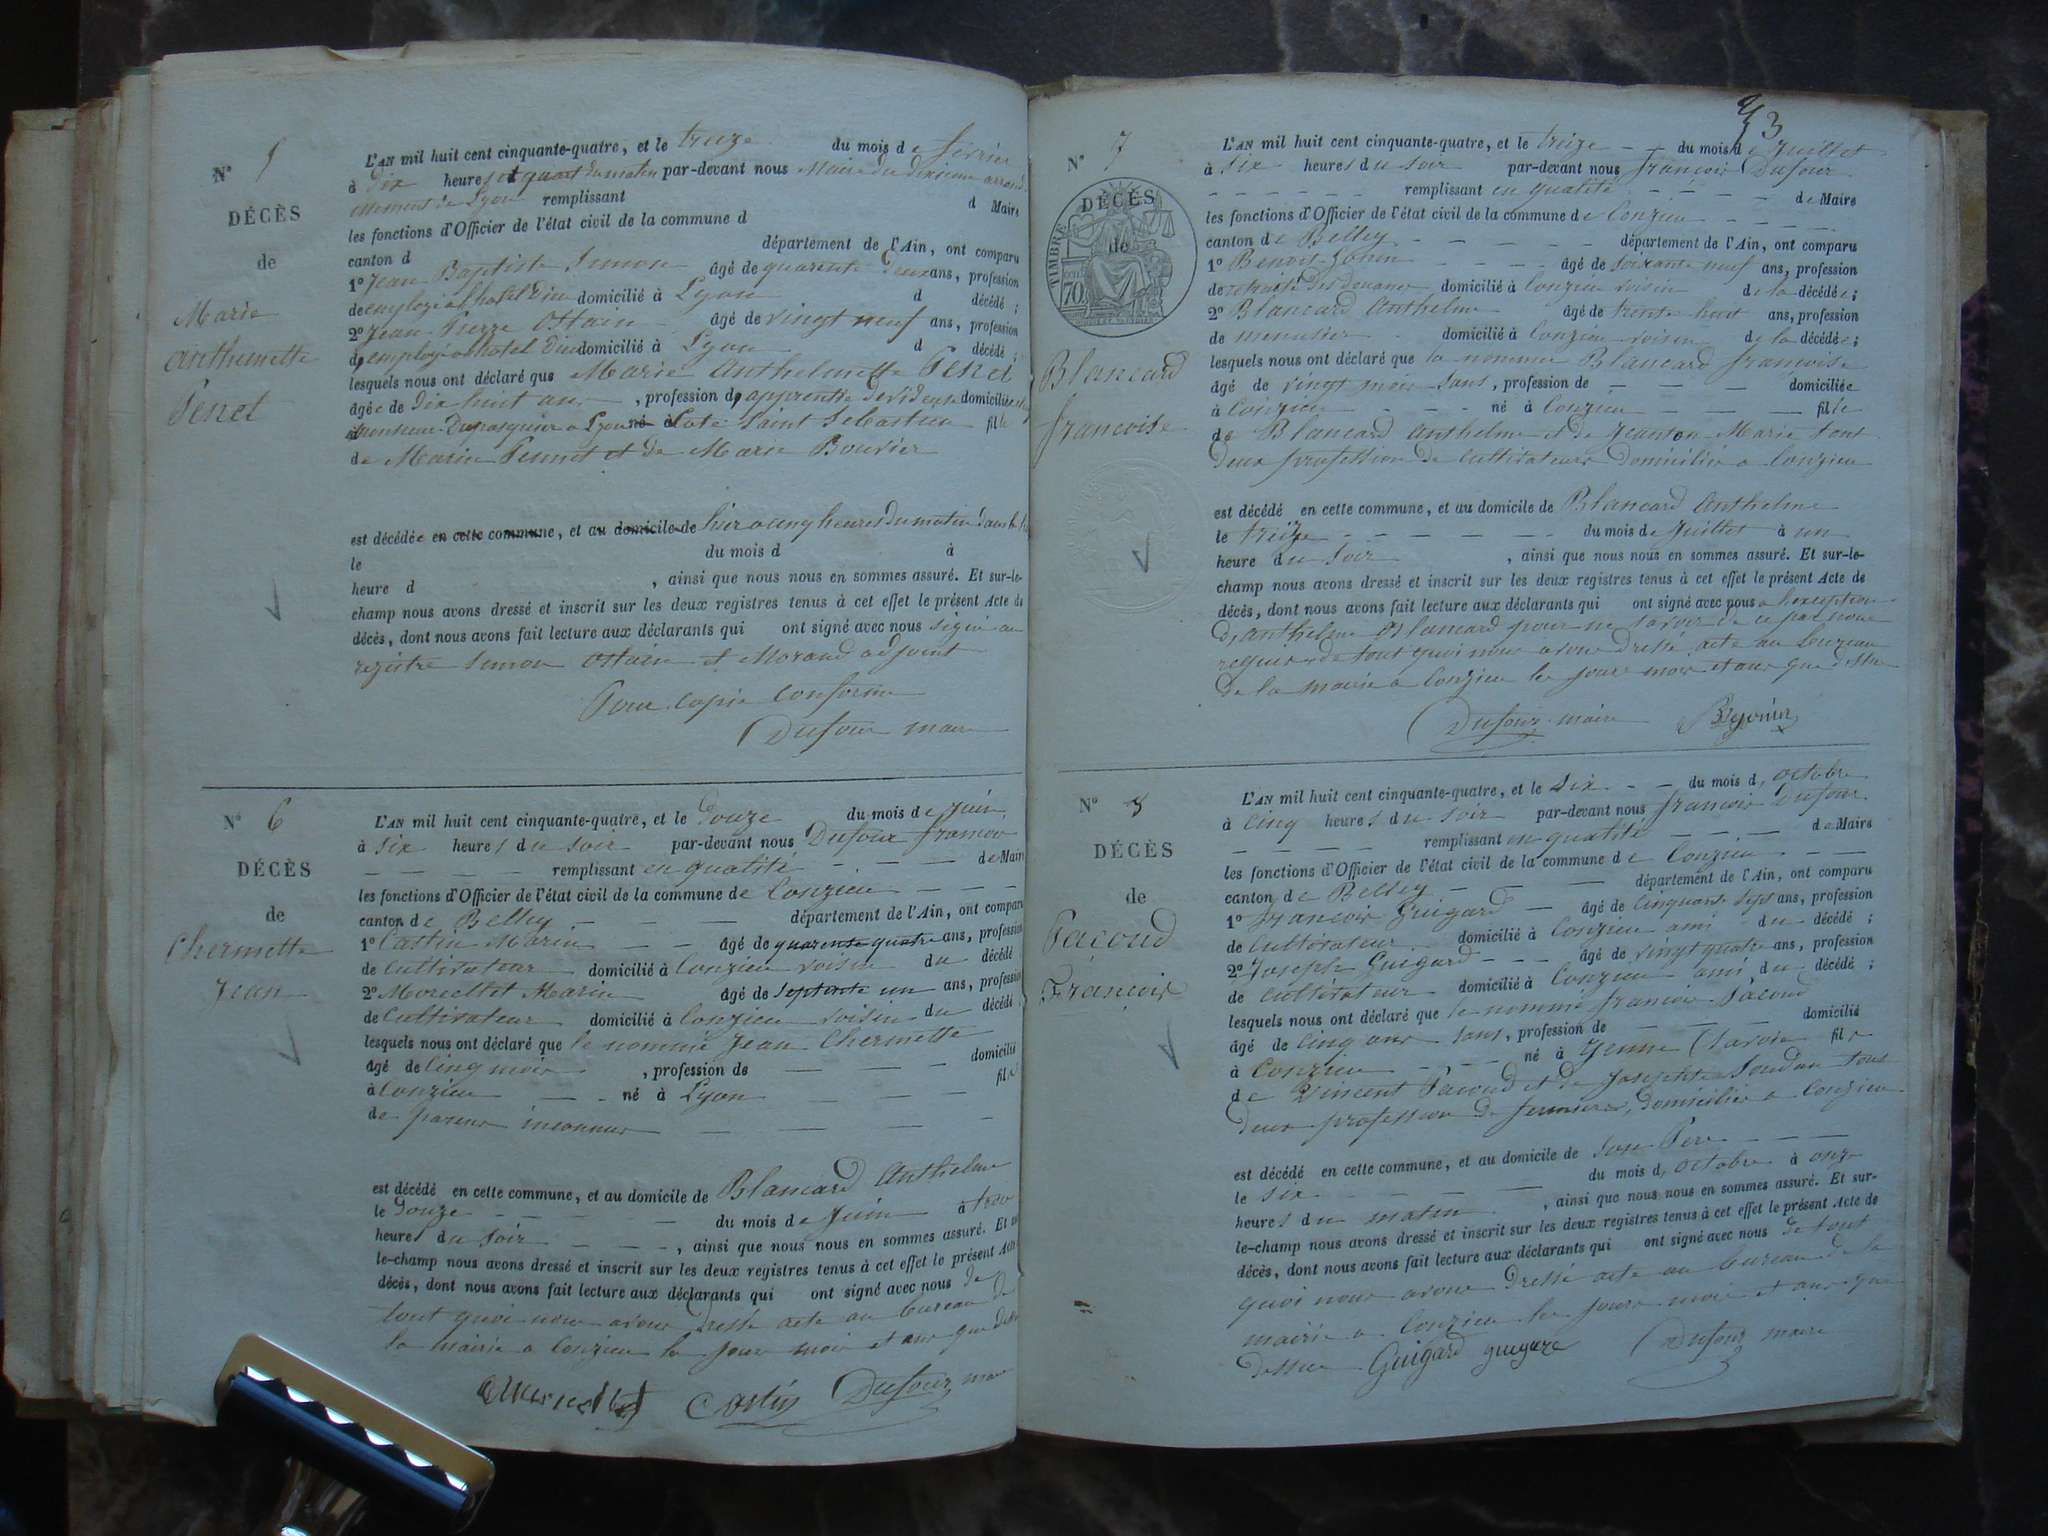 N° 5
DÉCÈS
de
Marie
Anthemette
Penet
L'AN mil huit cent cinquante-quatre, et le treize du mois de février
à dix heures et quart du matin par-devant nous Maire du dixieme arrond
issement de Lyon remplissant d Maire
les fonctions d'Officier de l'état civil de la commune d
canton d département de l'Ain, ont comparu
1° Jean Baptiste Simon âgé de quarente deux ans, profession
de employé a l'hotel Dieu domicilié à Lyon d décédé ;
2° Jean Pierre Ostain âgé de vingt neuf ans, profession
d'employé a hotel Dieu domicilié à Lyon d décédé ;
lesquels nous ont déclaré que Marie Anthelmette Penet
âgée de dix huit ans, profession d'apprentie devideuse domiciliée
a Lyon né à Cote Saint Sebastien fille
de Marin Pennet et de Marie Bouvier
est décédée en cette commune, et au domicile de hier a cinq heures du matin dans
le du mois d à
heure d , ainsi que nous nous en sommes assuré. Et sur-le-
champ nous avons dressé et inscrit sur les deux registres tenus à cet effet le présent Acte de
décès, dont nous avons fait lecture aux déclarants qui ont signé avec nous signé au
registre Simon Ostain et Morand adjoint
Pour copie conforme
Dufour maire
N° 6
DÉCÈS
de
Chermette
Jean
L'AN mil huit cent cinquante-quatre, et le douze du mois de Juin
à six heures du soir par-devant nous Dufour francois
remplissant en qualité de Maire
les fonctions d'Officier de l'état civil de la commune de Conzieu
canton de Belley département de l'Ain, ont comparu
1° Castin Marin âgé de quarente quatre ans, profession
de Cultivateur domicilié à Conzieu voisin du décédé
2° Morcellet Marin âgé de septente un ans, profession
de Cultivateur domicilié à Conzieu voisin du décédé
lesquels nous ont déclaré que le nommé Jean Chermette
âgé de cinq mois , profession de domicilié
à Conzieu né à Lyon fils
de parens inconnus
est décédé en cette commune, et au domicile de Blancard Anthelme
le Douze du mois de Juin à trois
heures du soir , ainsi que nous nous en sommes assuré. Et sur-
le-champ nous avons dressé et inscrit sur les deux registres tenus à cet effet le présent Acte
décès, dont nous avons fait lecture aux déclarants qui ont signé avec nous de
tout quoi nous avons dressé acte au bureau de
la mairie a Conzieu le jour mois et ans que dessus
Castin Dufour maire
43
N° 7
DÉCÈS
de
TIMBRE
70
Blancard
francoise
L'AN mil huit cent cinquante-quatre, et le treize du mois de Juillet
à six heures du soir par-devant nous francois Dufour
remplissant en qualité de Maire
les fonctions d'Officier de l'état civil de la commune de Conzieu
canton de Belley département de l'Ain, ont comparu
1° Benoit âgé de soixante neuf ans, profession
de retraité des douanes domicilié à Conzieu voisin de la décédée ;
2° Blancard Anthelme âgé de trente huit ans, profession
de menusier domicilié à Conzieu voisin de la décédée ;
lesquels nous ont déclaré que la nommée Blancard francoise
âgé de vingt mois sans, profession de domiciliée
à Conzieu né à Conzieu fille
de Blancard Anthelme et de Jeanton Marie tout
deux profession de cultivateurs domicilié a Conzieu
est décédé en cette commune, et au domicile de Blancard Anthelme
le treize du mois de Juillet à un
heure du soir , ainsi que nous nous en sommes assuré. Et sur-le-
champ nous avons dressé et inscrit sur les deux registres tenus à cet effet le présent Acte de
décès, dont nous avons fait lecture aux déclarants qui ont signé avec nous a l'exception
d'Anthelme Blancard pour ne savoir de ce par nous
requis de tout quoi nous avons dressé acte au bureau
de la mairie a Conzieu les jours mois et ans que dessus
Dufour maire
N° 8
DÉCÈS
de
Pacoud
Francois
L'AN mil huit cent cinquante-quatre, et le six du mois d'octobre
à cinq heures du soir par-devant nous francois Dufour
remplissant en qualité de Maire
les fonctions d'Officier de l'état civil de la commune de Conzieu
canton de Belley département de l'Ain, ont comparu
1° francois Guigard âgé de cinquante sept ans, profession
de Cultivateur domicilié à Conzieu ami du décédé ;
2° Joseph Guigard âgé de vingt quatre ans, profession
de Cultivateur domicilié à Conzieu ami du décédé ;
lesquels nous ont déclaré que le nommé francois Pacoud
âgé de cinq ans sans, profession de domicilié
à Conzieu né à Yenne (Savoie fils
de Vincent Pacoud et de Josephte Soudan tous
deux profession de fermiers, domicilié a Conzieu
est décédé en cette commune, et au domicile de son Père
le six du mois d'octobre à onze
heures du matin , ainsi que nous nous en sommes assuré. Et sur-
le-champ nous avons dressé et inscrit sur les deux registres tenus à cet effet le présent Acte de
décès, dont nous avons fait lecture aux déclarants qui ont signé avec nous de tout
quoi nous avons dressé acte au bureau de la
mairie a Conzieu les jours mois et ans que
dessus Guigard guigard Dufour maire